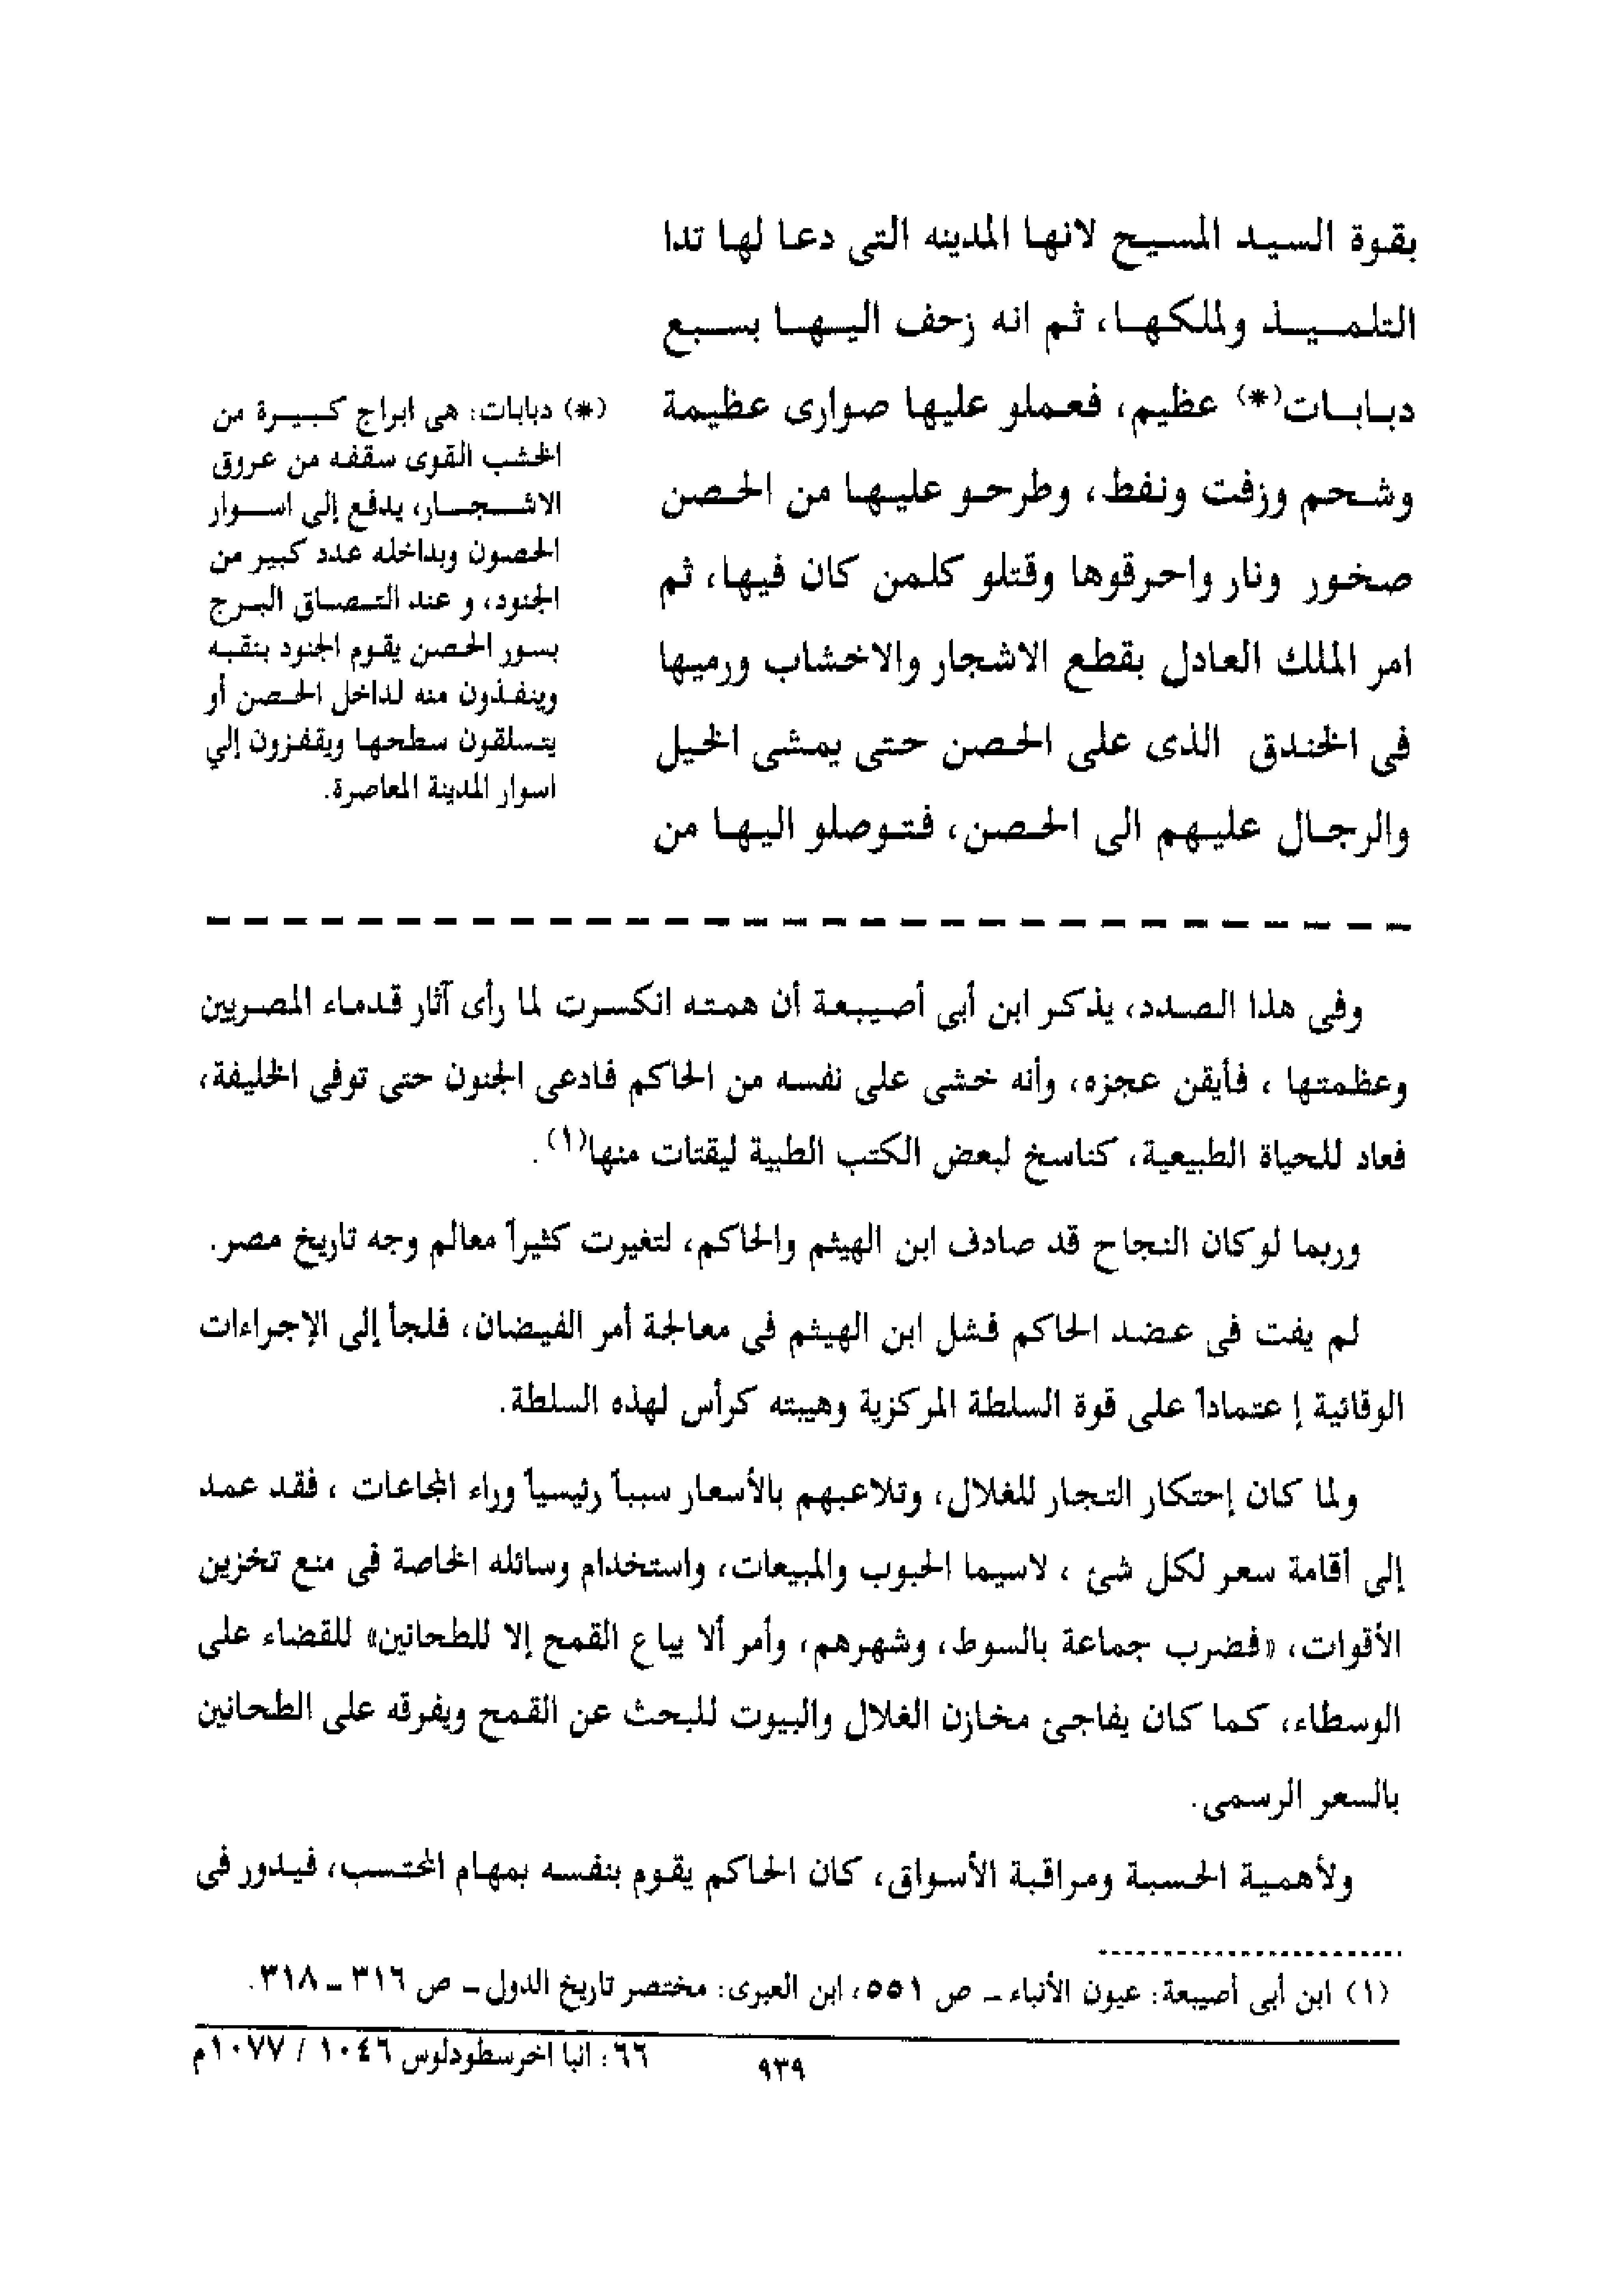 بقوة السيد المسيح لانها المدينه التى دعا لها تدا
التلميذ ولملكها، ثم انه زحف اليها بسبع
دبابات(*) عظيم، فعملو عليها صوارى عظيمة
وشحم وزفت ونفط، وطرحو عليها من الحصن
صخور ونار واحرقوها وقتلو كلمن كان فيها، ثم
امر الملك العادل بقطع الاشجار والاخشاب ورميها
فى الخندق الذى على الحصن حتى يمشى الخيل
والرجال عليهم الى الحصن، فتوصلو اليها من
(*) دبابات: هى ابراج كبيرة من
الخشب القوى سقفه من عروق
الاشجار، يدفع إلي اسوار
الحصون وبداخله عدد كبير من
الجنود، و عند التصاق البرج
بسور الحصن يقوم الجنود بنقبه
وينفذون منه لداخل الحصن أو
يتسلقون سطحها ويقفزون إلي
اسوار المدينة المعاصرة.
وفى هذا الصدد، يذكر ابن أبى أصيبعة أن همته انكسرت لما رأى آثار قدماء المصريين
وعظمتها ، فأيقن عجزه، وأنه خشى على نفسه من الحاكم فادعى الجنون حتى توفى الخليفة،
فعاد للحياة الطبيعية، كناسخ لبعض الكتب الطبية ليقتات منها(١).
وربما لو كان النجاح قد صادف ابن الهيثم والحاكم، لتغيرت كثيراً معالم وجه تاريخ مصر.
لم يفت فى عضد الحاكم فشل ابن الهيثم فى معالجة أمر الفيضان، فلجأ إلى الإجراءات
الوقائية إ عتماداً على قوة السلطة المركزية وهيبته كرأس لهذه السلطة.
ولما كان إحتكار التجار للغلال، وتلاعبهم بالأسعار سبباً رئيسياً وراء المجاعات ، فقد عمد
إلى أقامة سعر لكل شئ ، لاسيما الحبوب والمبيعات، واستخدام وسائله الخاصة فى منع تخزين
الأقوات، «فضرب جماعة بالسوط، وشهرهم، وأمر ألا يباع القمح إلا للطحانين» للقضاء على
الوسطاء، كما كان يفاجئ مخازن الغلال والبيوت للبحث عن القمح ويفرقه على الطحانين
بالسعر الرسمى.
ولأهمية الحسبة ومراقبة الأسواق، كان الحاكم يقوم بنفسه بمهام المحتسب، فيدور فى
(١) ابن أبى أصيبعة: عيون الأنباء ــ ص ٥٥١، ابن العبرى: مختصر تاريخ الدول ــ ص ٣١٦ ــ ٣١٨.
٦٦: انبا اخرسطودلوس ١٠٤٦ / ١٠٧٧م
٩٣٩